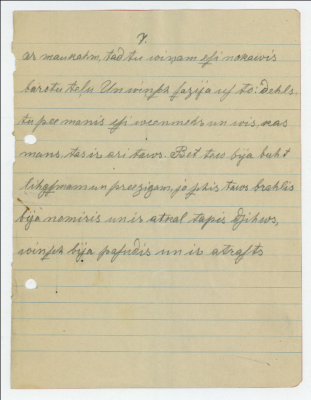 7.
ar maukahm, tad tu wiņam esi nokawis
barotu teļu. Un winsch sazija us to: dehls,
tu pee manis esi weenmehr un wis, kas
mans, tas ir ari taws. Bet tew bija buht
lihgsmam un preezigam, jo schis taws brahlis
bija nomiris un ir atkal tapis dsihws,
winsch bija pasudis un ir atrasts